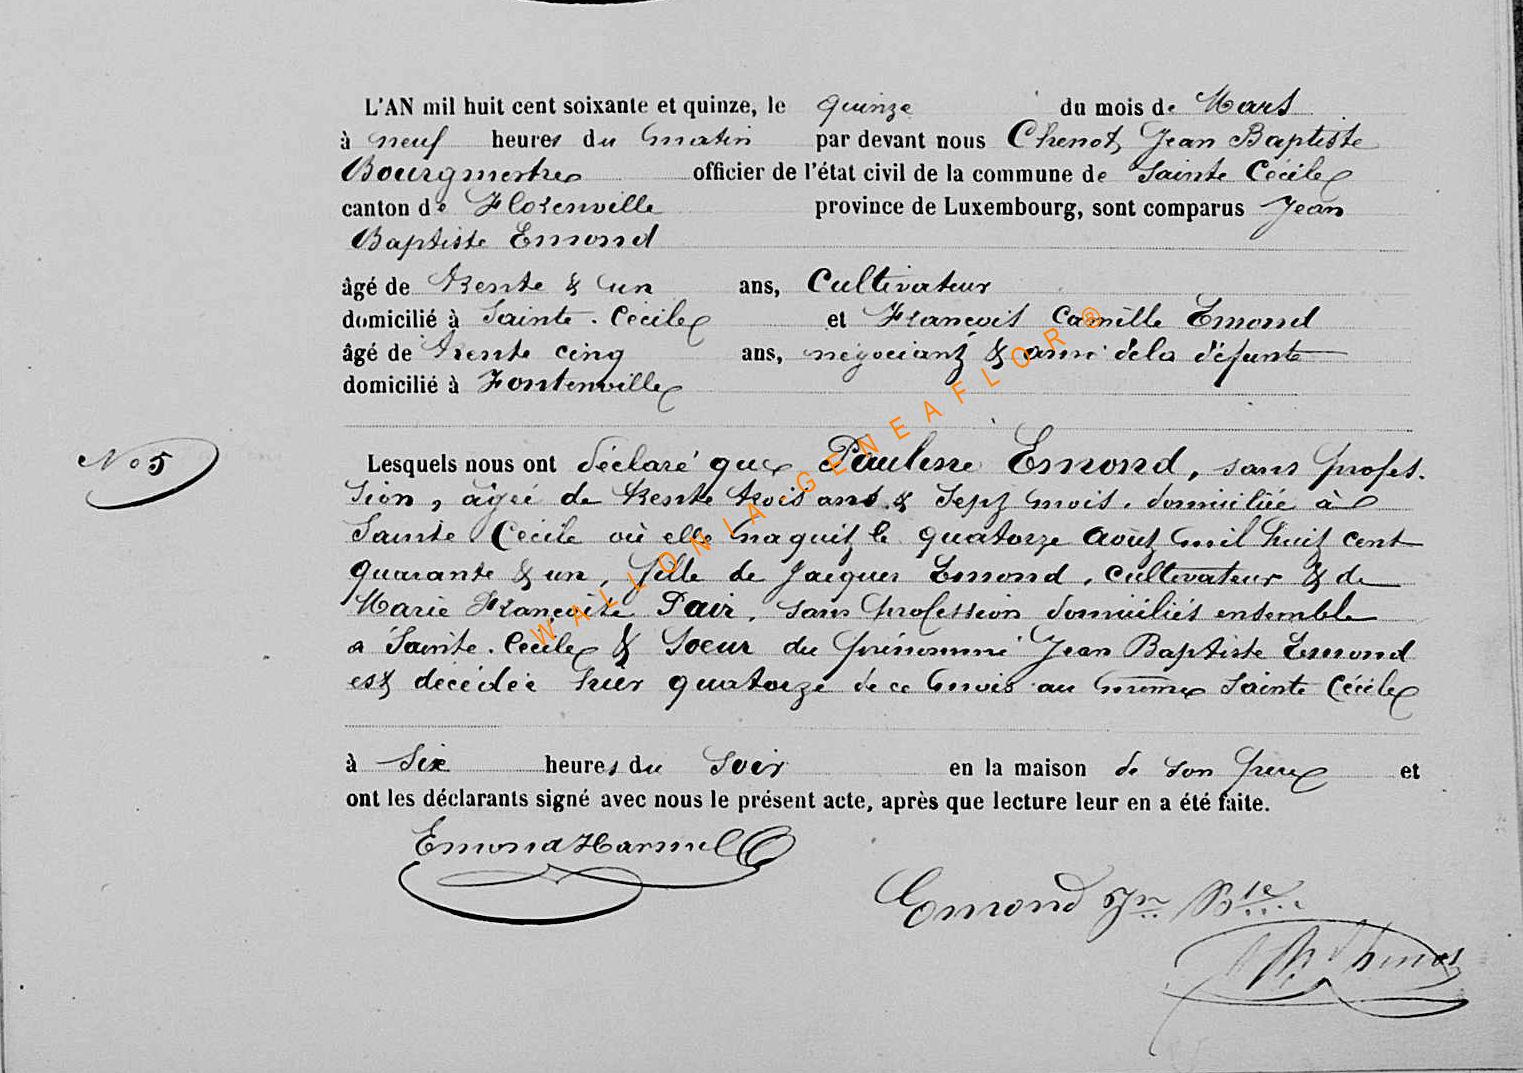 L'AN mil huit cent soixante et quinze, le quinze du mois de Mars
à neuf heures du matin par devant nous Chenot Jean Baptiste
Bourgmestre officier de l'état civil de la commune de Sainte Cécile
canton de Florenville province de Luxembourg, sont comparus Jean
Baptiste Emond
âgé de trente & un ans, Cultivateur
domicilié à Sainte-Cécile et François Camille Emond
âgé de trente cinq ans, négociant & ami dela défunte
domicilié à Fontenoille
No 5
Lesquels nous ont déclaré que Pauline Emond, sans profes-
sion, âgée de trente trois ans & sept mois, domiciliée à
Sainte Cécile où elle naquit le quatorze août mil huit cent
quarante & un, fille de Jacques Emond, cultivateur & de
Marie Françoise Pair, sans profession domiciliés ensemble
a Sainte-Cécile & Soeur du prénommé Jean Baptiste Emond
est décédée hier quatorze de ce mois au même Sainte Cécile
à Six heures du Soir en la maison de son frère et
ont les déclarants signé avec nous le présent acte, après que lecture leur en a été faite.
Emond Harmel
Emond Jn Bte
Chenot
WALLONIA GENEAFLOR ®